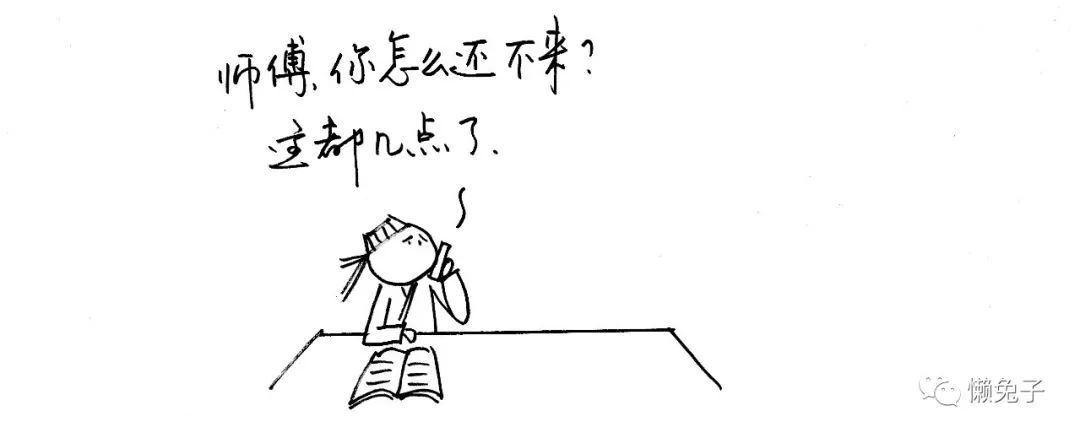 师傅、你怎么还不来?
这都几点了.
懒兔子